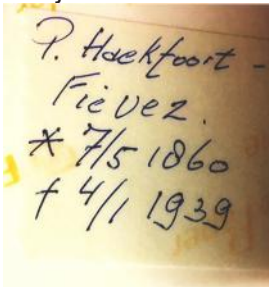 P. Haekfoort -
Fievez.
* 7/5 1860
† 4/1 1939